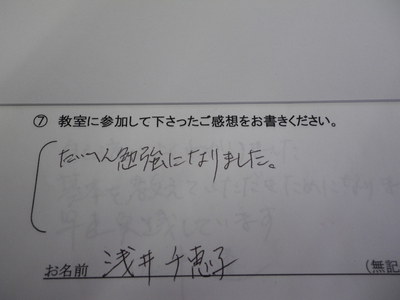 ⑦ 教室に参加して下さったご感想をお書きください。
たいへん勉強になりました。
お名前 浅井千恵子 (無記